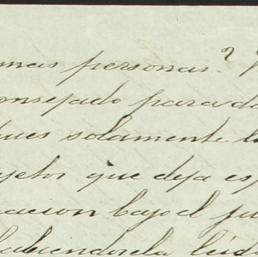 mas personas?
onsejado para da
ues solamente l
jetos que deja es
acion bajo el ju
abiendosela leid